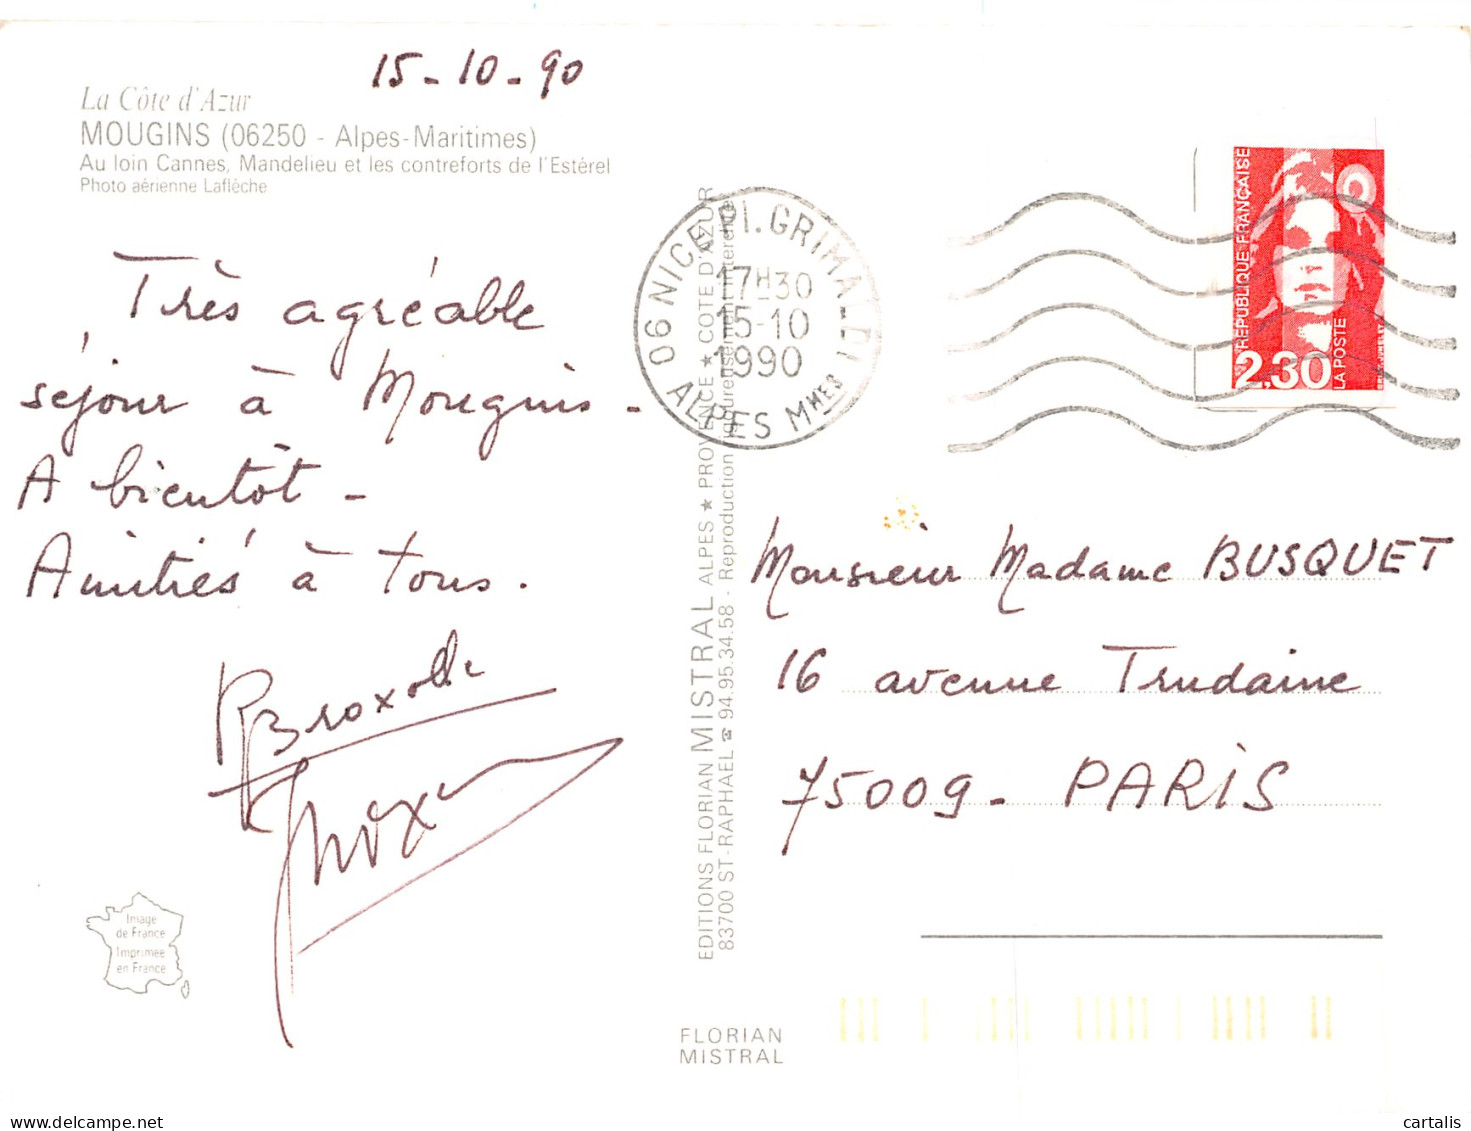 15-10-90
La Côte d'Azur
MOUGINS (06250 - Alpes-Maritimes)
Au loin Cannes, Mandelieu et les contreforts de l'Estérel
Photo aérienne Laflèche
Très agréable
séjour à Mougins -
A bientôt -
Amitiés à tous.
Image
de France
Imprimée
en France
EDITIONS FLORIAN MISTRAL ALPES ★ PROVENCE ★ COTE D'AZUR
83700 ST-RAPHAEL ☎ 94.95.34.58 - Reproduction
FLORIAN
MISTRAL
06 NICE PL. GRIMALDI
17H30
15-10
1990
ALPES MMES
REPUBLIQUE FRANÇAISE
2,30
LA POSTE
Monsieur Madame BUSQUET
16 avenue Trudaine
75009 - PARIS
cartalis
delcampe.net